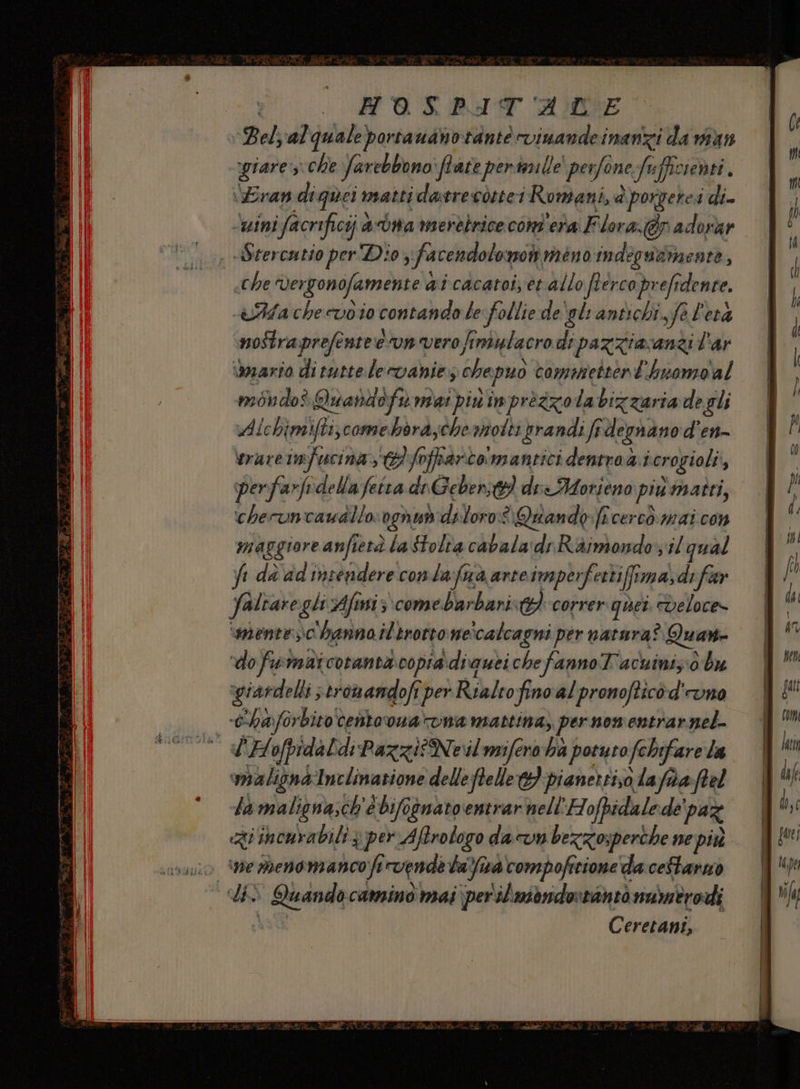 HOSPITALE
Bel, al quale portauano tante viuande inanzi da man
giare, che sarebbono state per mille persone sufficienti.
Eran di quei matti da tre cotte i Romani, à porgere i di-
uini sacrificij à vna meretrice com'era Flora, & adorar
Stercutio per Dio, facendolo non meno indegnamente,
che vergonosamente a i cacatoi, et allo sterco presidente.
Ma che vò io contando le follie de gli antichi, se l'età
nostra presente è vn vero simulacro di pazzia, anzi l'ar
mario di tutte le vanie, che può commetter l'huomo al
mondo? Quando fu mai piu in prezzo la bizzaria de gli
Alchimisti, come hora, che molti grandi si degnano d'en-
trare in fucina, & soffiar co mantici dentro a i crogioli,
per farsi della setta di Geber, & di Morieno più matti,
che vn cauallo ognun di loro? Quando si cercò mai con
maggiore ansietà la stolta cabala di Raimondo, il qual
si dà ad intendere con la sua arte imperfettissima, di far
saltare gli Asini, come barbari & correr quei veloce-
mente, c'hanno il trotto ne' calcagni per natura? Quan-
do fu mai cotanta copia di quei che fanno Tacuini, ò bu
giardelli, trouandosi per Rialto fino al pronostico d'vno
c'ha sorbito cento oua vna mattina, per non entrar nel-
l'Hospidal di Pazzi? Ne il misero hà potuto schifare la
maligna Inclinatione delle stelle & pianetti, ò la sua stel
la maligna, ch'è bisognato entrar nell'Hospidale de' paz
zi incurabili, per Astrologo da vn bezzo, perche ne più
ne meno manco si vende la sua compositione da cestaruo
li. Quando caminò mai per il mondo tanto numero di
Ceretani,